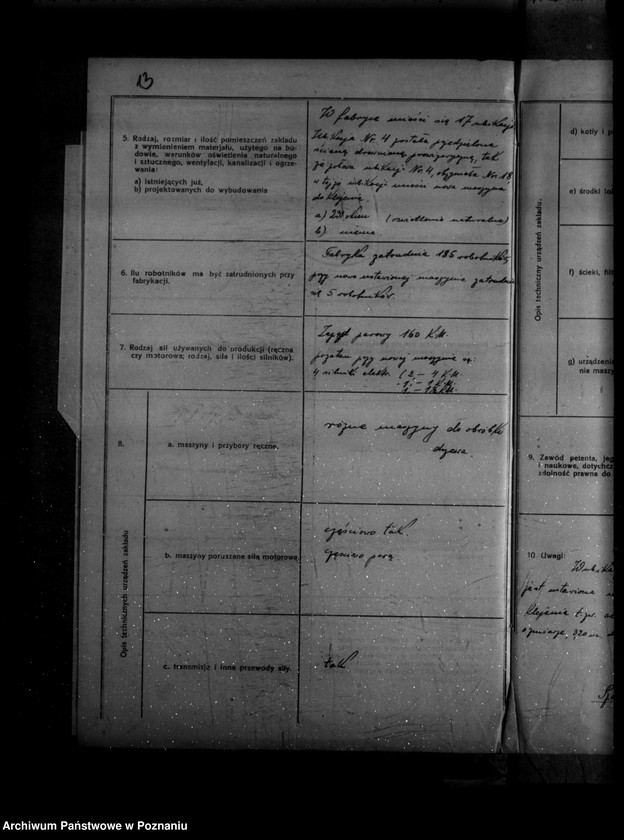 13
5. Rodzaj, rozmiar i ilość pomieszczeń zakładu
z wymienieniem materjału, użytego na bu-
dowie, warunków oświetlenia naturalnego
i sztucznego, wentylacji, kanalizacji i ogrze-
wania:
a) istniejących już,
b) projektowanych do wybudowania
W fabryce mieści się 17
Nr. 4 została
ścianą drewnianą tak
że Nr. 4, otrzymała Nr. 18
w tejże ubikacji mieści nowa maszyna
do klejenia.
a) (oświetlenie naturalne)
b) niema
6. Ilu robotników ma być zatrudnionych przy
fabrykacji.
Fabryka zatrudnia 185 robotników,
przy nowo ustawionej maszynie zatrudni
się 5 robotników.
7. Rodzaj sił używanych do produkcji (ręczna
czy motorowa; rodzaj, siła i ilości silników).
parowy 160 K.M.
pozatem przy nowej maszynie są:
4 silniki elektr. (2 – 4 K.M.
8.
Opis technicznych urządzeń zakładu
a. maszyny i przybory ręczne.
różne maszyny do obróbki
drzewa.
b. maszyny poruszane siłą motorową.
częściowo tak.
częściowo parą
c. transmisje i inne przewody siły.
tak
Opis techniczny urządzeń zakładu.
d) kotły i p
e) środki
f) ścieki,
g) urządzenia
nia maszy
9. Zawód petenta, jeg
i naukowe, dotychcz
zdolność prawna do
10. Uwagi:
jest ustawiona
klejenia
Archiwum Państwowe w Poznaniu